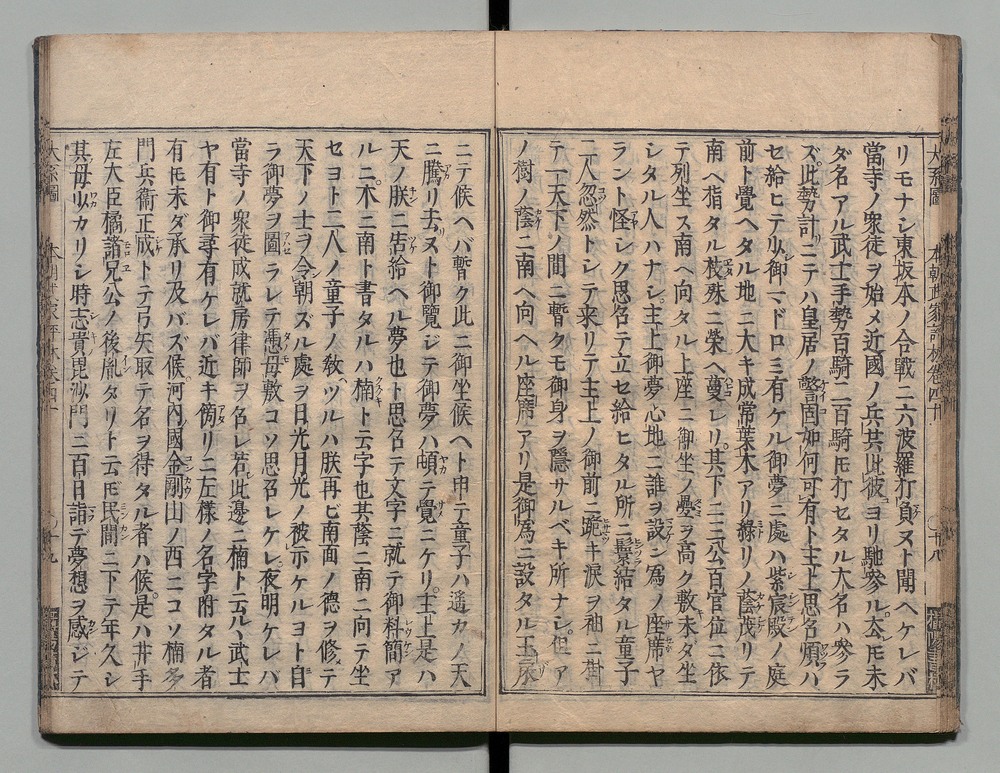 リモナシ東坂本ノ合戰ニ六波羅打負ヌト聞ヘケレバ
當寺ノ衆徒ヲ始メ近國ノ兵共此彼ヨリ馳參ル然㆑モ未
ダ名アル武士手勢百騎二百騎㆑モ打セタル大名ハ參ラ
ズ此勢計ニテハ皇居ノ警固如何可有ト主上思召煩ハ
セ給ヒテ少御マドロミ有ケル御夢ニ處ハ紫宸殿ノ庭
前ト覺ヘタル地ニ大キ成常葉木アリ緑リノ蔭茂リテ
南ヘ指タル枝殊ニ榮ヘ蔓レリ其下ニ三公百官位ニ依
テ列坐ス南ヘ向タル上座ニ御坐ノ疊ヲ高ク敷未ダ坐
シタル人ハナシ主上御夢心地ニ誰ヲ設ン爲ノ座席ヤ
ラント怪シク思召テ立セ給ヒタル所ニ鬟結タル童子
二人忽然トシテ来リテ主上ノ御前ニ跪キ涙ヲ袖ニ掛
テ一天下ノ間ニ暫クモ御身ヲ隱サルベキ所ナシ但ア
ノ樹ノ蔭ニ南ヘ向ヘル座席アリ是御爲ニ設タル玉扆
ニテ候ヘバ暫ク此ニ御坐候ヘト申テ童子ハ遥カノ天
ニ騰リ去ヌト御覽ジテ御夢ハ頓テ覺ニケリ主上是ハ
天ノ朕ニ告給ヘル夢也ト思召テ文字ニ就テ御料簡ア
ルニ木ニ南ト書タルハ楠ト云字也其蔭ニ南ニ向テ坐
セヨト二人ノ童子ノ敎ヘツルハ朕再ビ南面ノ德ヲ修テ
天下ノ士ヲ令朝ズル處ヲ日光月光ノ被示ケルヨト自
ラ御夢ヲ圖ラレテ憑母敷コソ思召レケレ夜明ケレバ
當寺ノ衆徒成就房律師ヲ召レ若此邊ニ楠ト云ル武士
ヤ有ト御尋有ケレバ近キ傍リニ左樣ノ名字附タル者
有㆑モ未ダ承リ及バズ候河内國金剛山ノ西ニコソ楠多
門兵衛正成トテ弓矢取テ名ヲ得タル者ハ候是ハ井手
左大臣橘諸兄公ノ後胤タリト云㆑モ民間ニ下テ年久シ
其母少カリシ時志貴毘沙門ニ百日詣デ夢想ヲ感ジテ